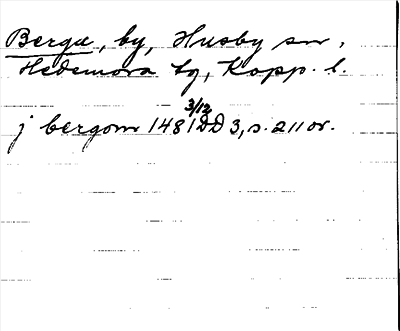 Berga, by, Husby sn,
Hedemora tg, Kopp. l.
j bergom 1481 3/12 DD 3, s. 211 or.